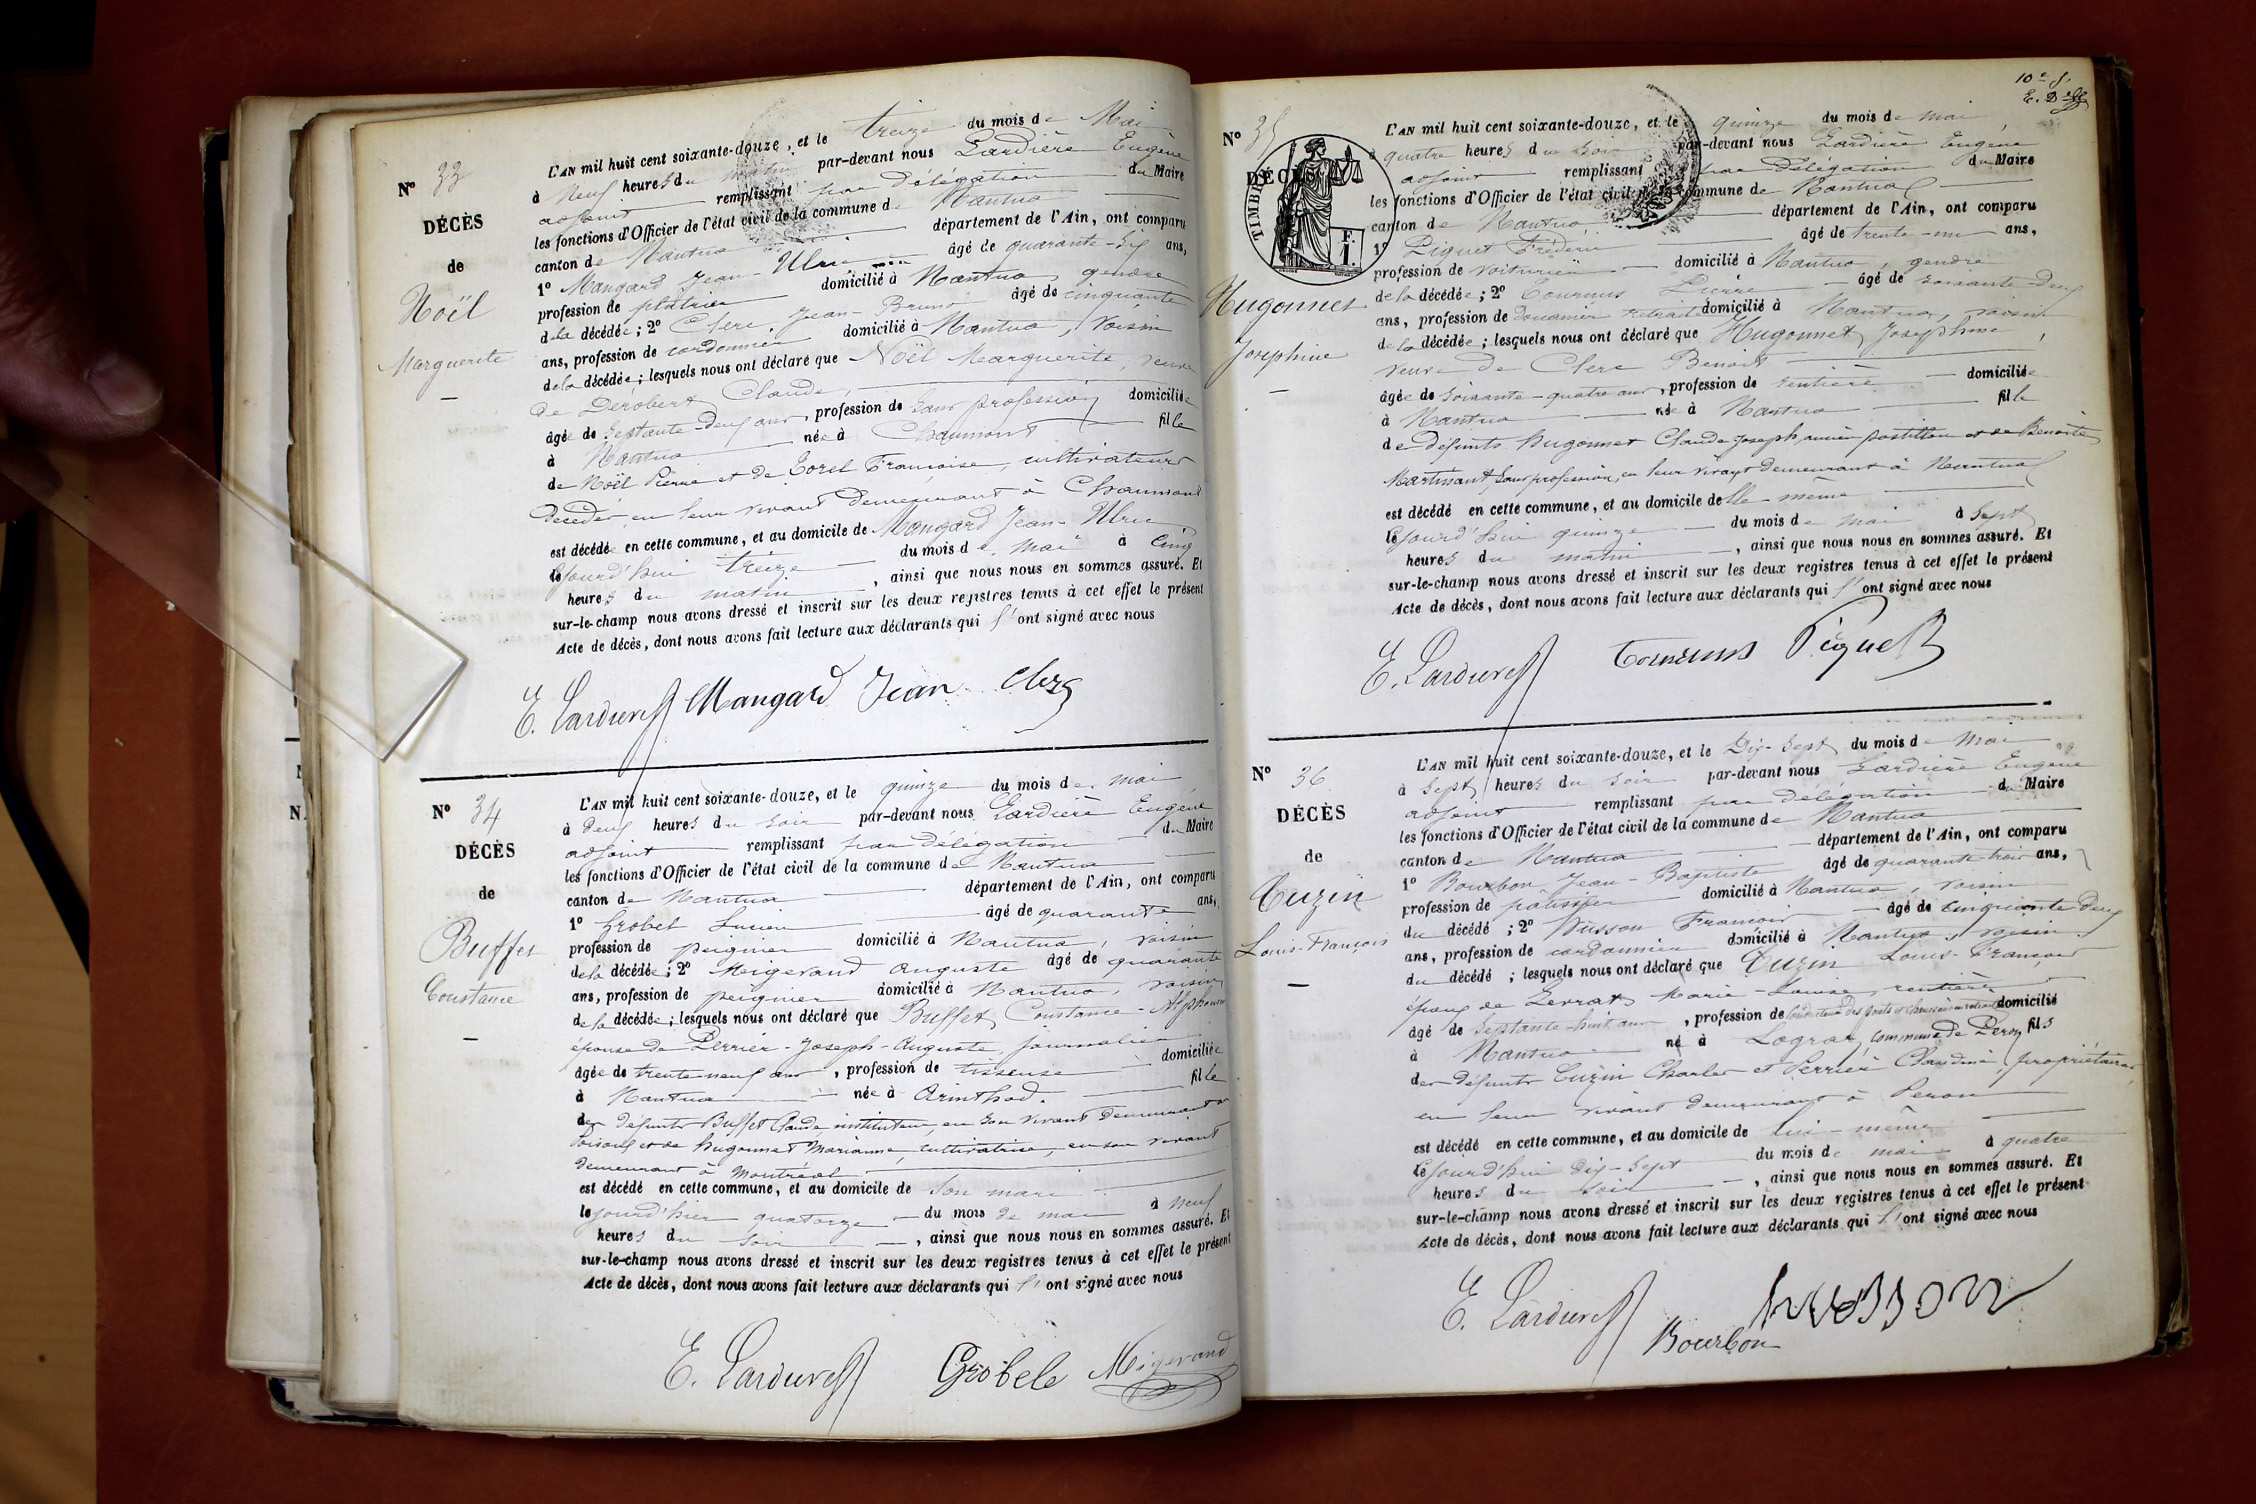 N° 33
DÉCÈS
de
Noël
Marguerite
L'AN mil huit cent soixante-douze, et le treize du mois de Mai
à Neuf heures du matin par-devant nous Lardière Eugène
adjoint remplissant par délégation du Maire
les fonctions d'Officier de l'état civil de la commune de Nantua
canton de Nantua département de l'Ain, ont comparu
1° Mangard Jean-Ulric âgé de quarante-six ans,
profession de plâtrier domicilié à Nantua, gendre
de la décédée; 2° Clerc, Jean-Bruno âgé de cinquante
ans, profession de cordonnier domicilié à Nantua, voisin
de la décédée; lesquels nous ont déclaré que Noël Marguerite, veuve
de Dérobert Claude,
âgée de septante-deux ans, profession de sans profession domiciliée
à Nantua née à Chaumont fille
de Noël Pierre et de Lorel Françoise, cultivateurs
décédés en leur vivant demeurant à Chaumont
est décédée en cette commune, et au domicile de Mangard Jean-Ulric
lejourd'hui treize du mois de mai à cinq
heures du matin, ainsi que nous nous en sommes assuré. Et
sur-le-champ nous avons dressé et inscrit sur les deux registres tenus à cet effet le présent
Acte de décès, dont nous avons fait lecture aux déclarants qui l'ont signé avec nous
E. Lardière Mangard Jean Clerc
N° 34
DÉCÈS
de
Buffet
Constance
L'AN mil huit cent soixante-douze, et le quinze du mois de mai
à deux heures du soir par-devant nous Lardière Eugène
adjoint remplissant par délégation du Maire
les fonctions d'Officier de l'état civil de la commune de Nantua
canton de Nantua département de l'Ain, ont comparu
1° Grobel Lucien âgé de quarante ans,
profession de peignier domicilié à Nantua, voisin
de la décédée; 2° Migerand Auguste âgé de quarante
ans, profession de peignier domicilié à Nantua, voisin
de la décédée; lesquels nous ont déclaré que Buffet Constance-Alphonsine
épouse de Perrier-Joseph-Auguste, journalier
âgée de trente neuf ans, profession de tisseuse domiciliée
à Nantua née à Arinthod. fille
des défunts Buffet Claude, instituteur, en son vivant demeurant à
et de Hugonnet Marianne, cultivatrice, en son vivant
demeurant à Montréal
est décédé en cette commune, et au domicile de son mari
lejourd'hier quatorze du mois de mai à neuf
heures du soir, ainsi que nous nous en sommes assuré. Et
sur-le-champ nous avons dressé et inscrit sur les deux registres tenus à cet effet le présent
Acte de décès, dont nous avons fait lecture aux déclarants qui l'ont signé avec nous
E. Lardière Grobele Migerand
10e f.
N° 35
DÉCÈS
TIMBRE
F.
1.
Hugonnet
Joséphine
L'AN mil huit cent soixante-douze, et le quinze du mois de mai
à quatre heures du soir par-devant nous Lardière Eugène
adjoint remplissant par délégation du Maire
les fonctions d'Officier de l'état civil de la commune de Nantua
canton de Nantua, département de l'Ain, ont comparu
1° Piquet Frédéric âgé de trente-un ans,
profession de voiturier domicilié à Nantua, gendre
de la décédée; 2° Tournus Pierre âgé de soixante-deux
ans, profession de douanier retraité domicilié à Nantua, voisin
de la décédée; lesquels nous ont déclaré que Hugonnet Joséphine,
veuve de Clerc Benoit
âgée de soixante-quatre ans, profession de rentière domiciliée
à Nantua née à Nantua fille
de défunts Hugonnet Claude Joseph ancien postillon et de Benoite
Martinant sans profession, en leur vivant demeurant à Nantua
est décédé en cette commune, et au domicile delle-même
lejourd'hui quinze du mois de mai à sept
heures du matin, ainsi que nous nous en sommes assuré. Et
sur-le-champ nous avons dressé et inscrit sur les deux registres tenus à cet effet le présent
Acte de décès, dont nous avons fait lecture aux déclarants qui l'ont signé avec nous
E. Lardière Tournus Piquet
N° 36
DÉCÈS
de
Cuzin
Louis-François
L'AN mil huit cent soixante-douze, et le Dix-Sept du mois de Mai
à Sept heures du soir par-devant nous Lardière Eugène
adjoint remplissant par délégation du Maire
les fonctions d'Officier de l'état civil de la commune de Nantua
canton de Nantua département de l'Ain, ont comparu
1° Bourbon Jean-Baptiste âgé de quarante-trois ans,
profession de patissier domicilié à Nantua, voisin
du décédé; 2° Husson François âgé de cinquante deux
ans, profession de cordonnier domicilié à Nantua, voisin
du décédé; lesquels nous ont déclaré que Cuzin Louis-François
époux de Serrat Marie-Louise, rentière
âgé de septante-huit ans, profession de conducteur des ponts et chaussées en retraite domicilié
à Nantua né à Logras, commune de Peron fils
des défunts Cuzin Charles et Perrier Claudine, propriétaires,
en leur vivant demeurant à Peron
est décédé en cette commune, et au domicile de lui-même
lejourd'hui dix-sept du mois de mai à quatre
heures du soir, ainsi que nous nous en sommes assuré. Et
sur-le-champ nous avons dressé et inscrit sur les deux registres tenus à cet effet le présent
Acte de décès, dont nous avons fait lecture aux déclarants qui l'ont signé avec nous
E. Lardière Bourbon husson